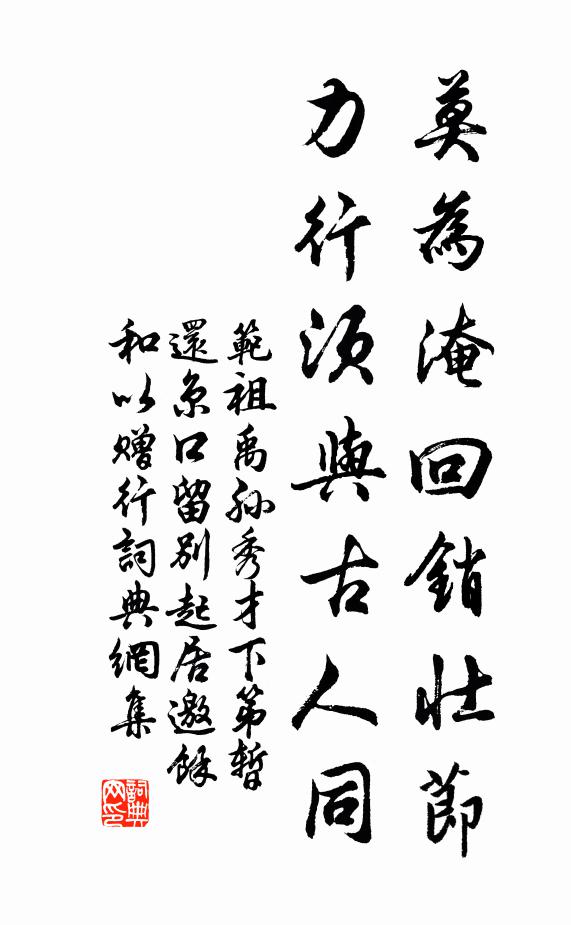 莫為淹回銷壯節
力行須與古人同
範祖禹孫秀才下第暫
還京口留別起居邀餘
和以贈行詞典網集
詞典網印